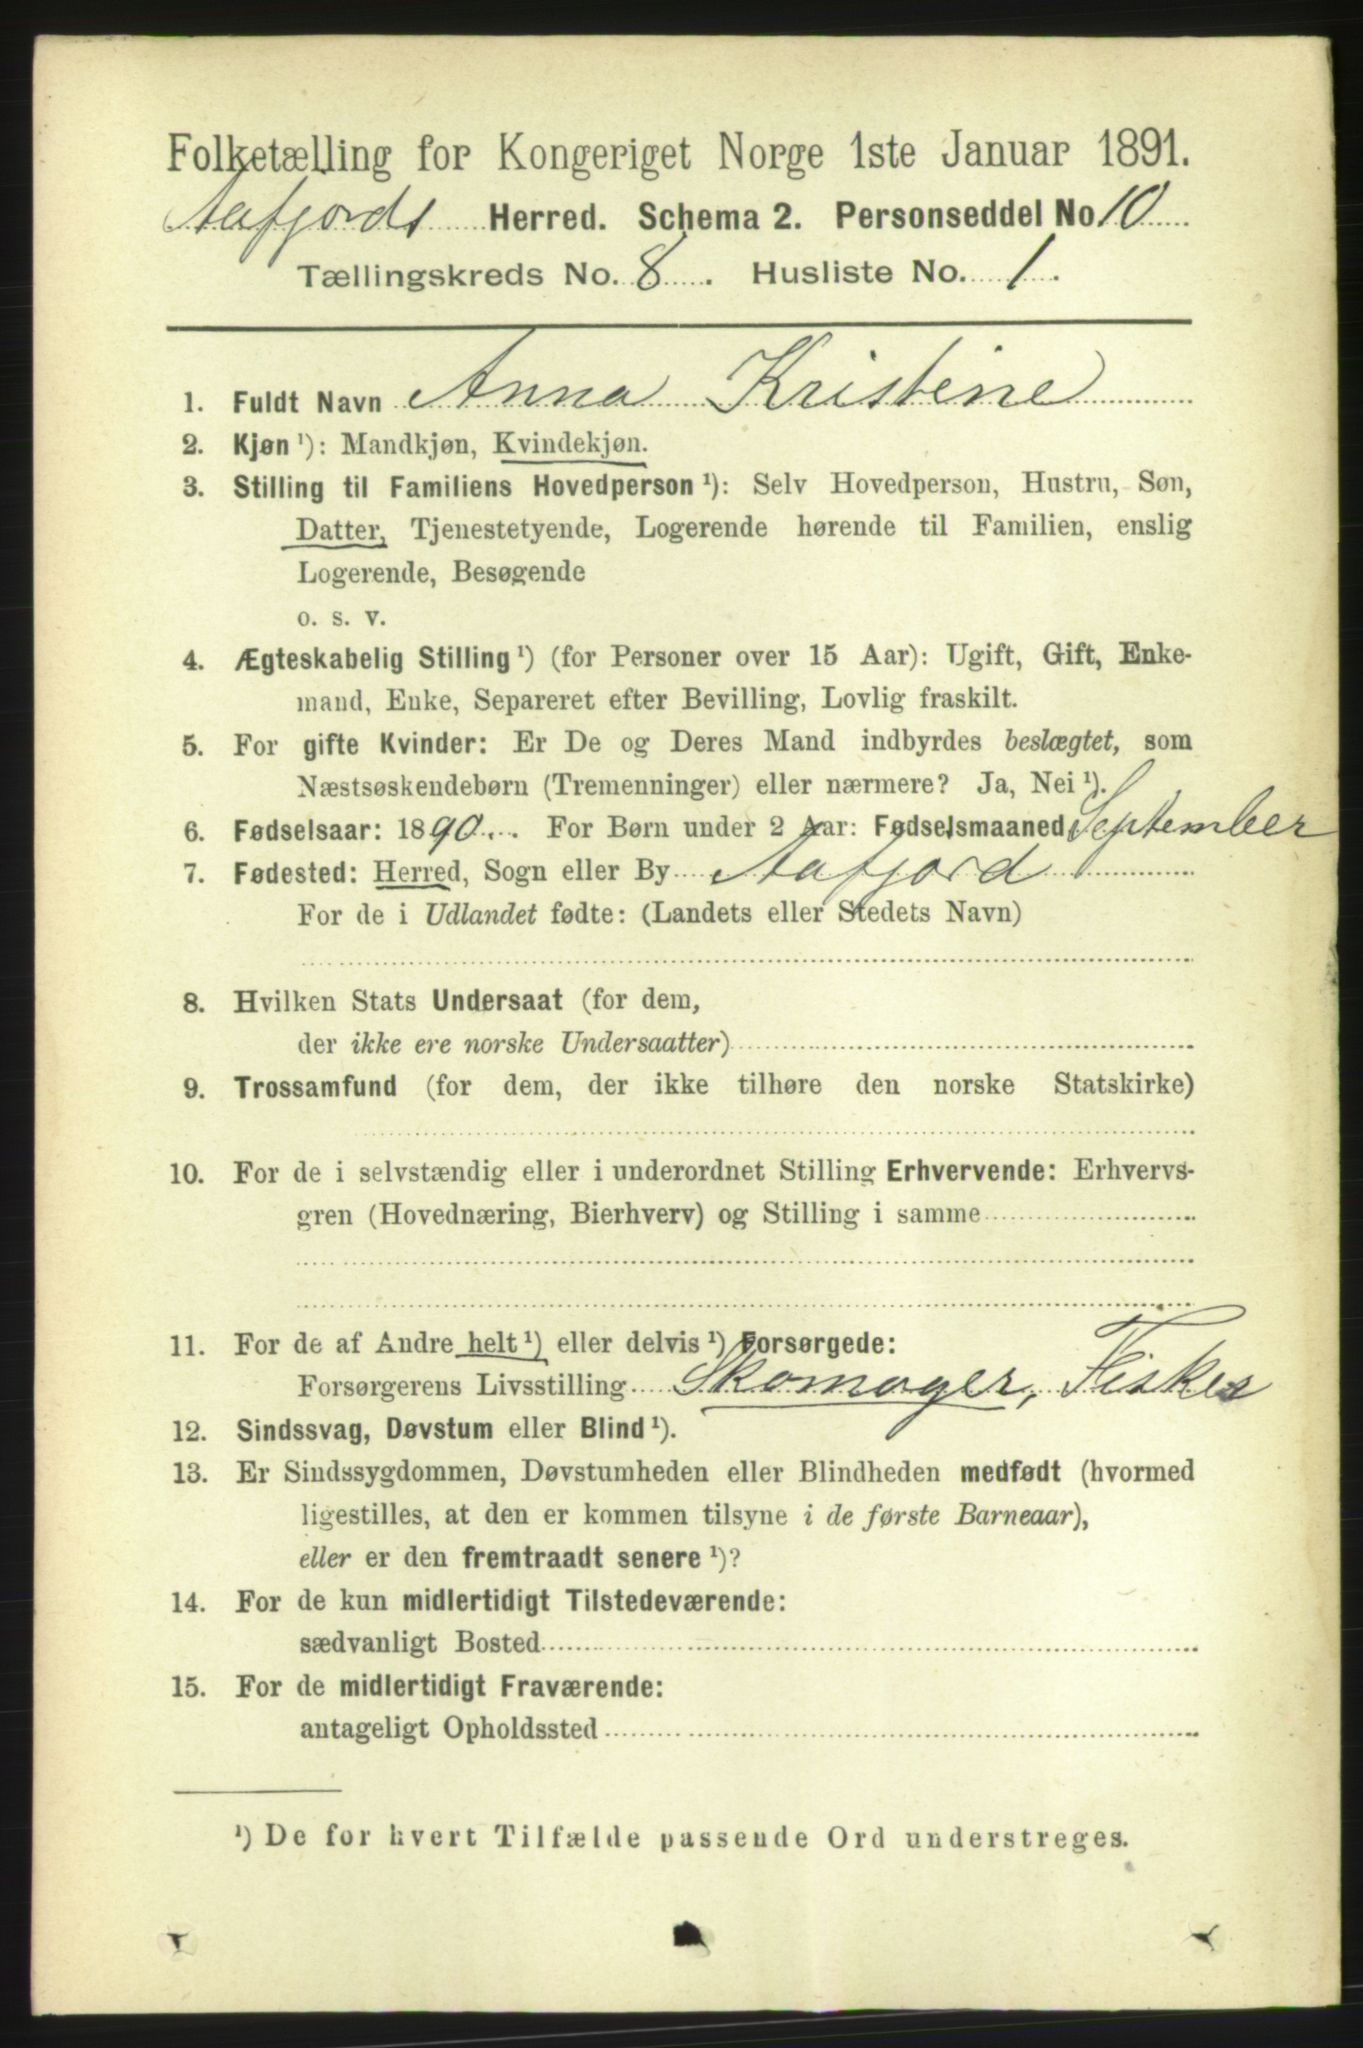 Folketælling for Kongeriget Norge 1ste Januar 1891.
Aafjords Herred. Schema 2. Personseddel No 10
Tællingskreds No. 8. Husliste No. 1.
1. Fuldt Navn Anna Kristine
2. Kjøn ¹): Mandkjøn, Kvindekjøn.
3. Stilling til Familiens Hovedperson ¹): Selv Hovedperson, Hustru, Søn,
Datter, Tjenestetyende, Logerende hørende til Familien, enslig
Logerende, Besøgende
o. s. v.
4. Ægteskabelig Stilling ¹) (for Personer over 15 Aar): Ugift, Gift, Enke-
mand, Enke, Separeret efter Bevilling, Lovlig fraskilt.
5. For gifte Kvinder: Er De og Deres Mand indbyrdes beslægtet, som
Næstsøskendebørn (Tremenninger) eller nærmere? Ja, Nei ¹).
6. Fødselsaar: 1890. For Børn under 2 Aar: Fødselsmaaned September
7. Fødested: Herred, Sogn eller By Aafjord
For de i Udlandet fødte: (Landets eller Stedets Navn)
8. Hvilken Stats Undersaat (for dem,
der ikke ere norske Undersaatter)
9. Trossamfund (for dem, der ikke tilhøre den norske Statskirke)
10. For de i selvstændig eller i underordnet Stilling Erhvervende: Erhvervs-
gren (Hovednæring, Bierhverv) og Stilling i samme
11. For de af Andre helt ¹) eller delvis ¹) Forsørgede:
Forsørgerens Livsstilling Skomager, Fisker
12. Sindssvag, Døvstum eller Blind ¹).
13. Er Sindssygdommen, Døvstumheden eller Blindheden medfødt (hvormed
ligestilles, at den er kommen tilsyne i de første Barneaar),
eller er den fremtraadt senere ¹)?
14. For de kun midlertidigt Tilstedeværende:
sædvanligt Bosted
15. For de midlertidigt Fraværende:
antageligt Opholdssted
¹) De for hvert Tilfælde passende Ord understreges.